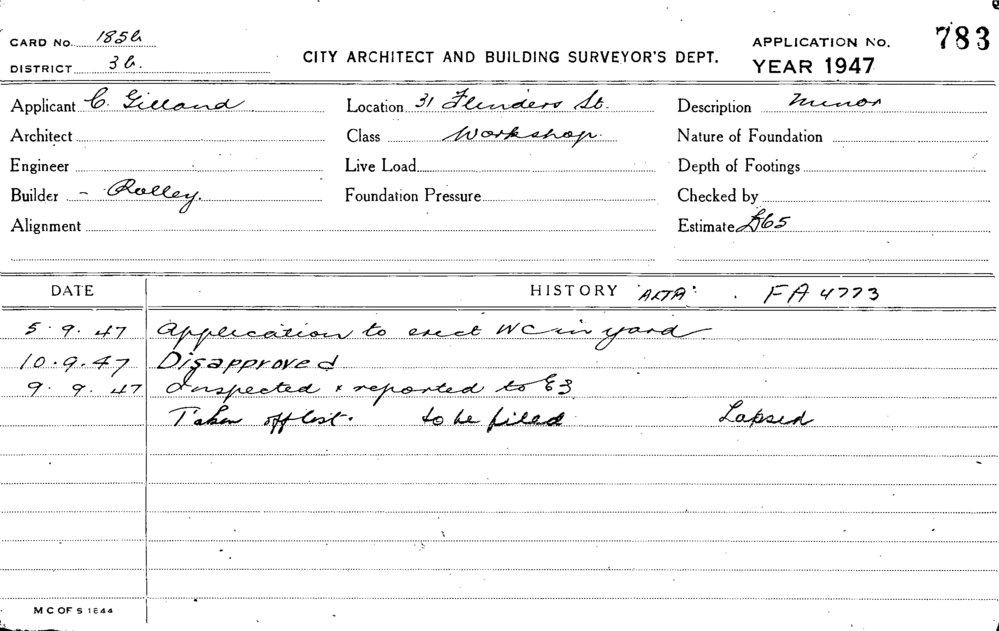 CARD No. 1856
DISTRICT 36.
CITY ARCHITECT AND BUILDING SURVEYOR'S DEPT.
APPLICATION No. 783
YEAR 1947
Applicant C. Gilland Location 31 Flinders St. Description Minor
Architect Class Workshop. Nature of Foundation
Engineer Live Load Depth of Footings
Builder - Rolley. Foundation Pressure Checked by
Alignment Estimate £65
DATE HISTORY "ALTA". FA 4773
5.9.47 Application to erect WC in yard
10.9.47 Disapproved
9.9.47 Inspected & reported to E3
Taken off list. to be filed Lapsed
M C OF S 1844